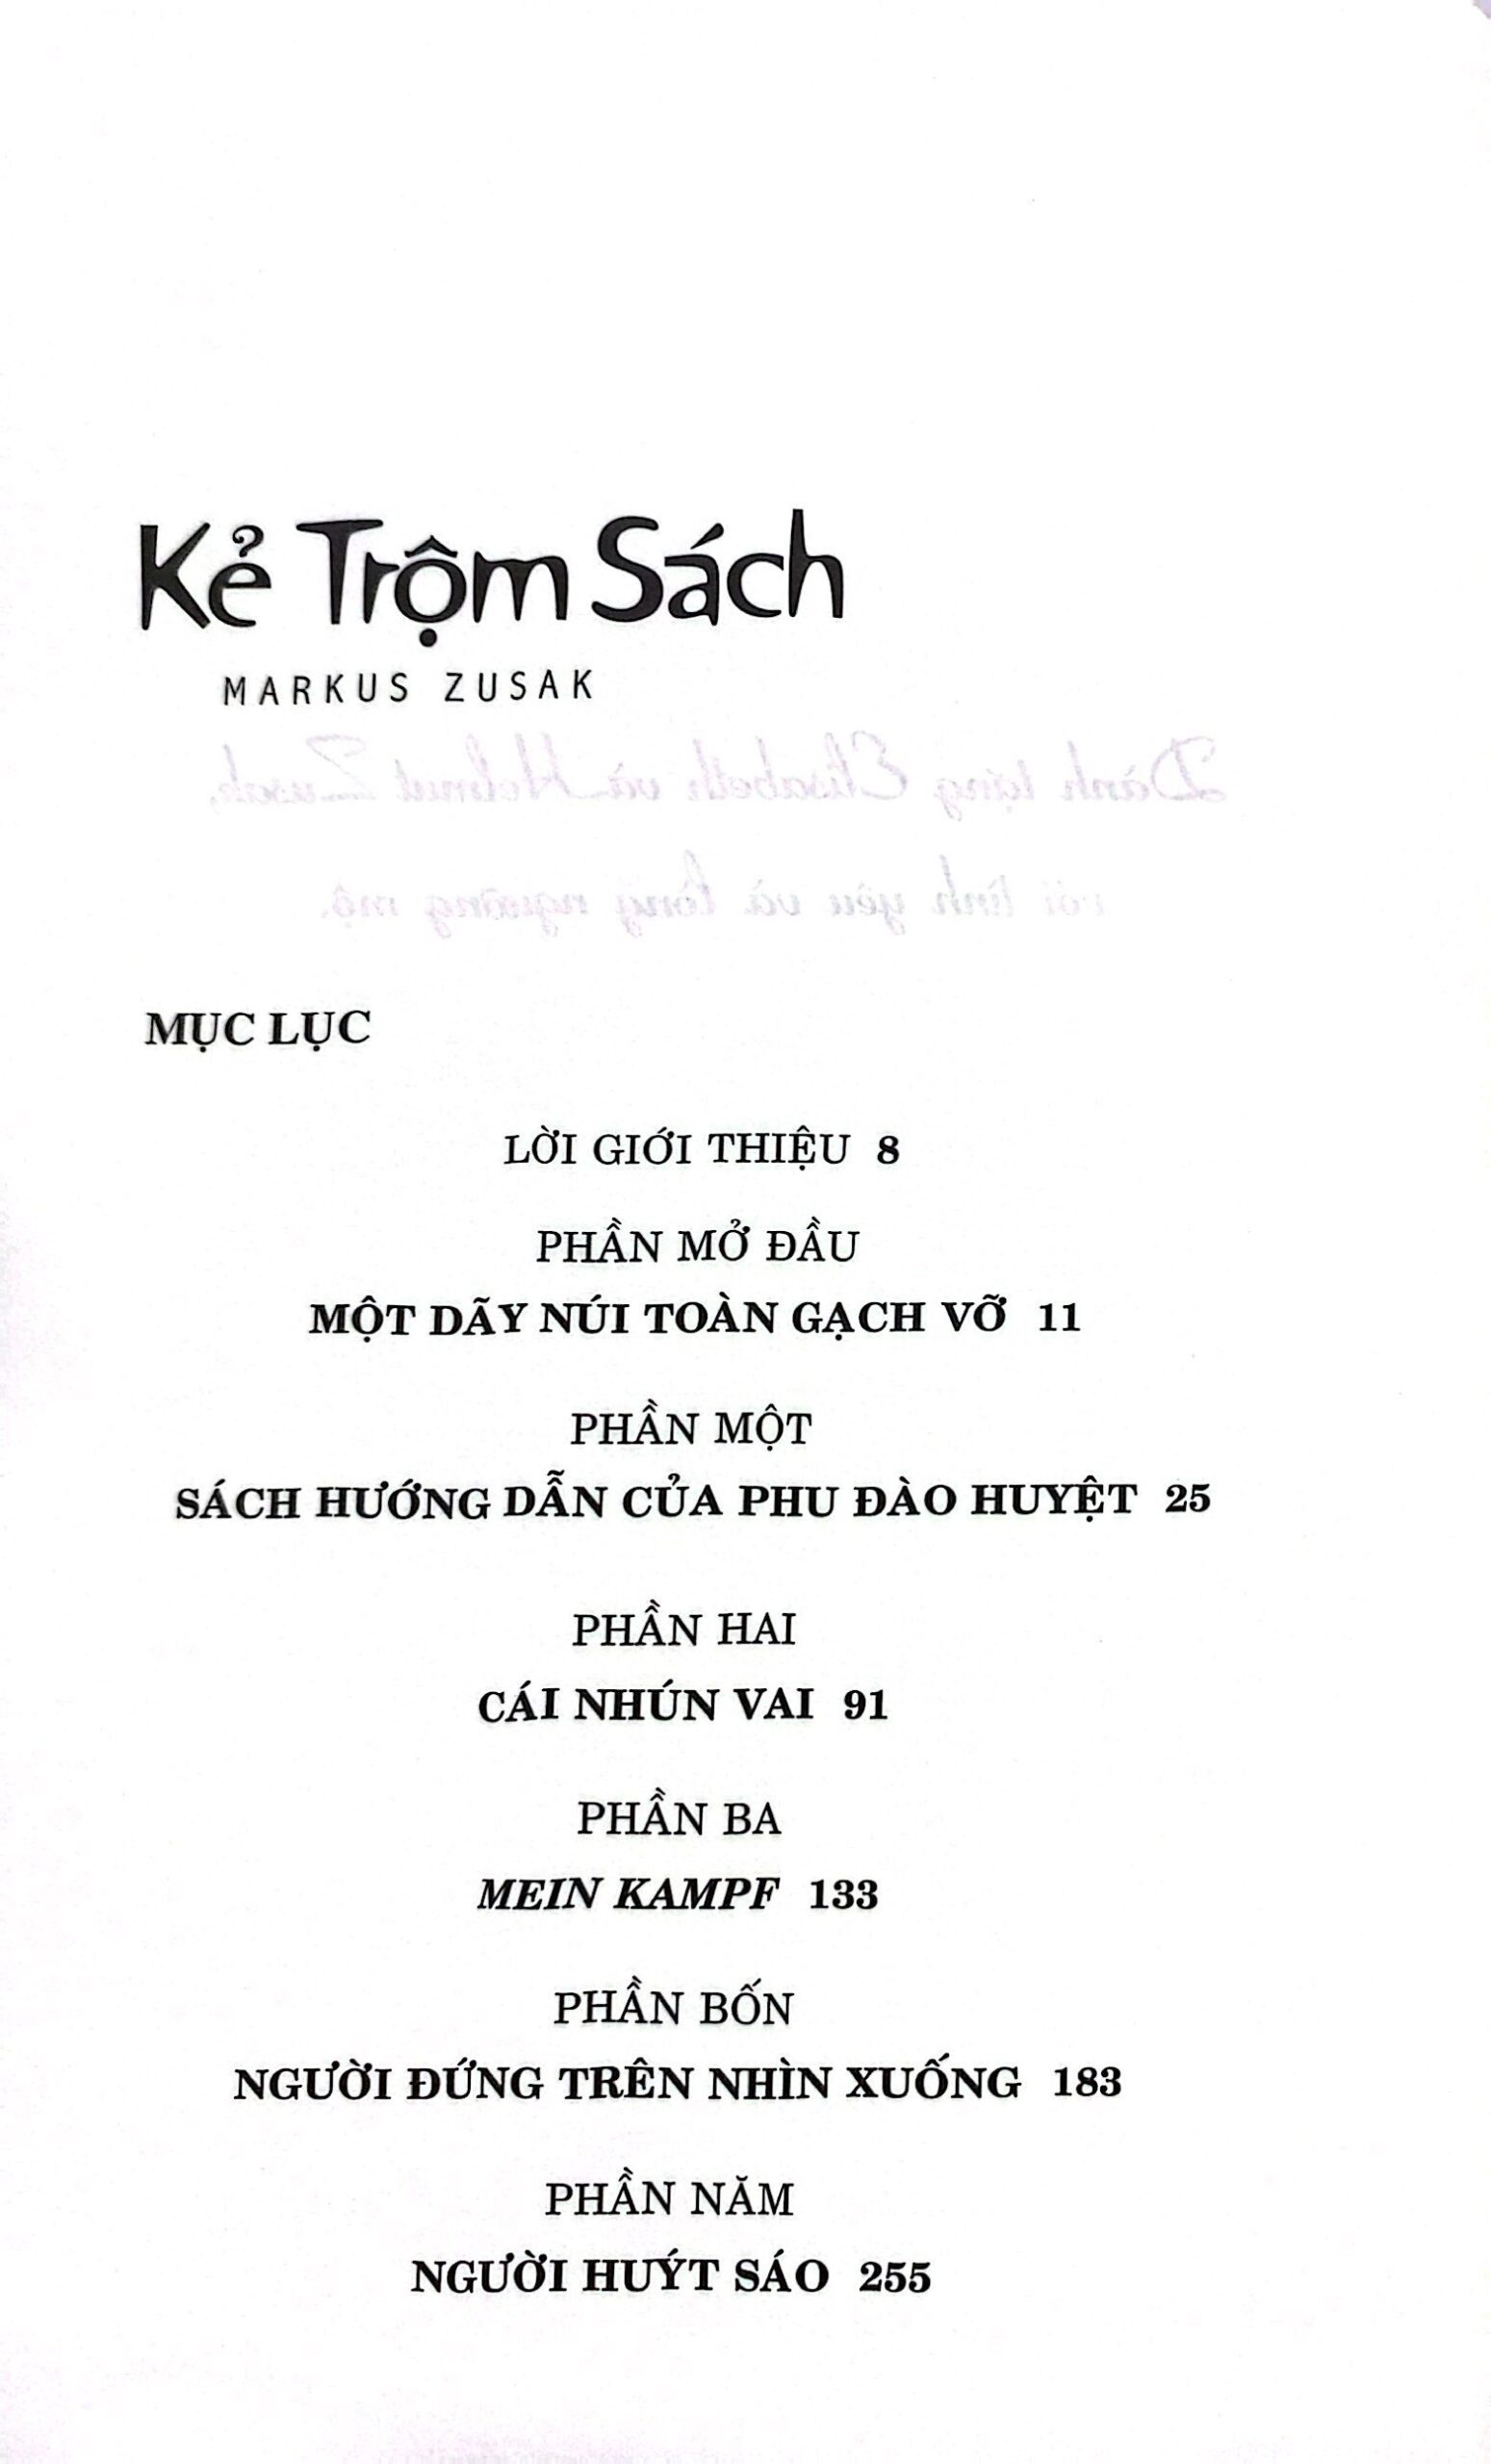 Kẻ Trộm Sách
MARKUS ZUSAK
Dành tặng Elisabeth và Helmut Zusak,
với tình yêu và lòng ngưỡng mộ.
MỤC LỤC
LỜI GIỚI THIỆU 8
PHẦN MỞ ĐẦU
MỘT DÃY NÚI TOÀN GẠCH VỠ 11
PHẦN MỘT
SÁCH HƯỚNG DẪN CỦA PHU ĐÀO HUYỆT 25
PHẦN HAI
CÁI NHÚN VAI 91
PHẦN BA
MEIN KAMPF 133
PHẦN BỐN
NGƯỜI ĐỨNG TRÊN NHÌN XUỐNG 183
PHẦN NĂM
NGƯỜI HUÝT SÁO 255